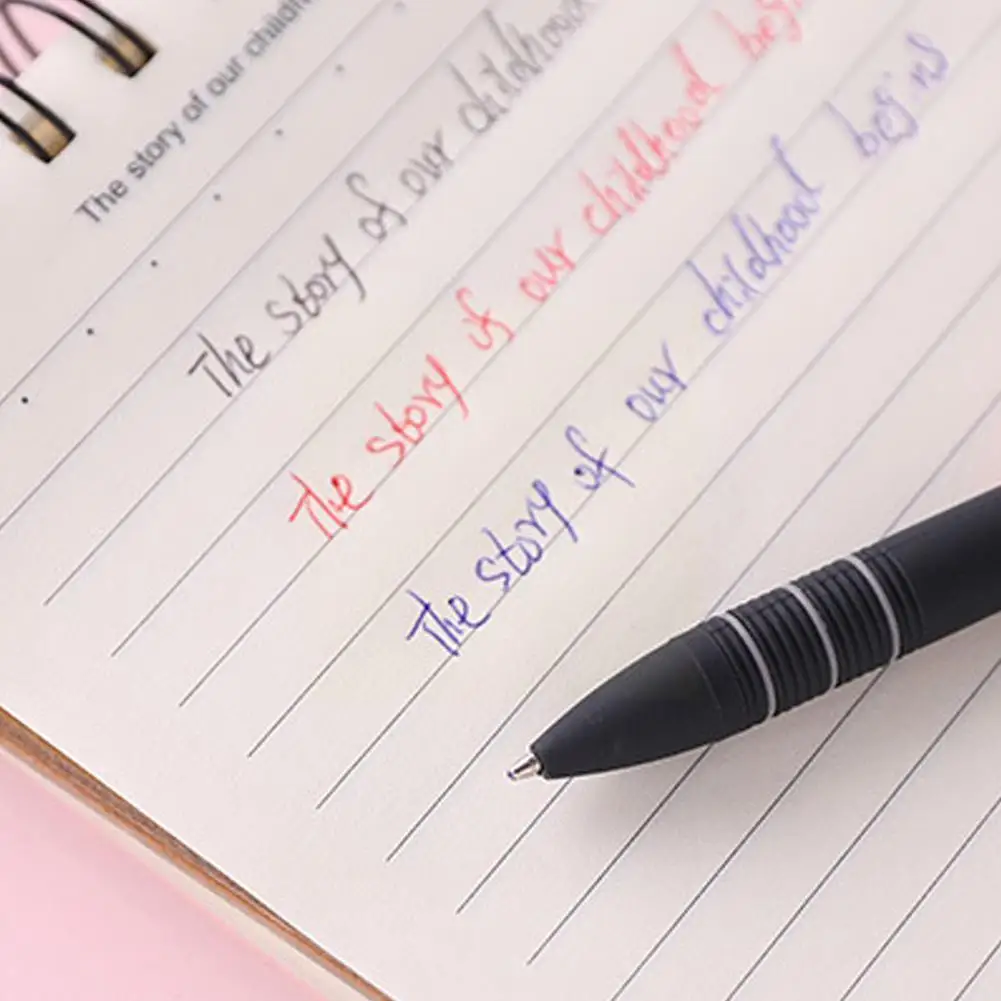 The story of our childh
The story of our childhood
The story of our childhood begins
The story of our childhood begins